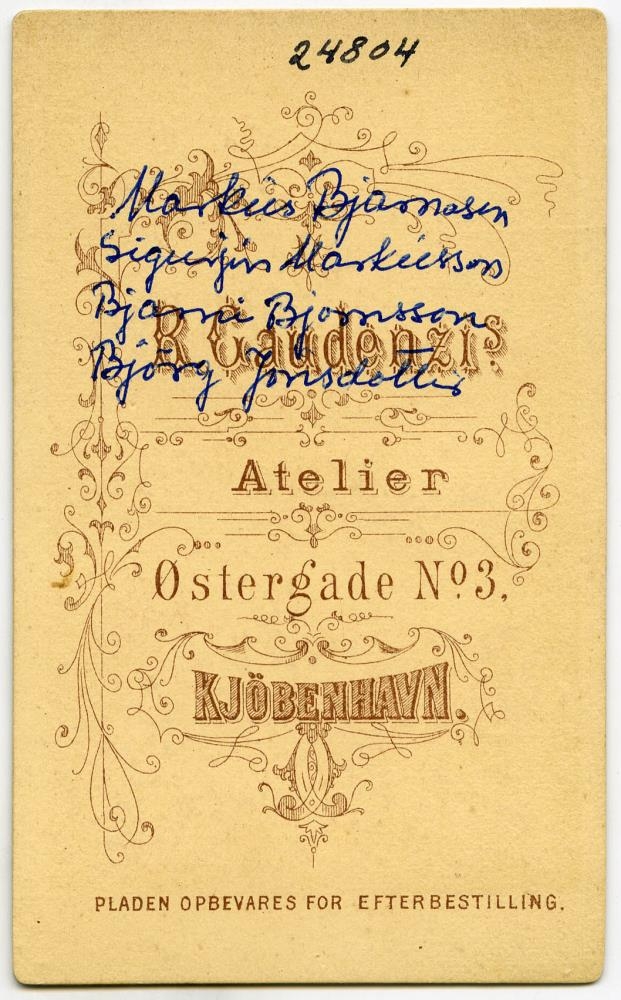 24804
Markús Bjarnason
Sigurjón Markússon
Bjarni Bjornsson
Björg Jónsdóttir
R. Gaudenzi's
Atelier
Østergade No. 3,
KJÖBENHAVN.
PLADEN OPBEVARES FOR EFTERBESTILLING.